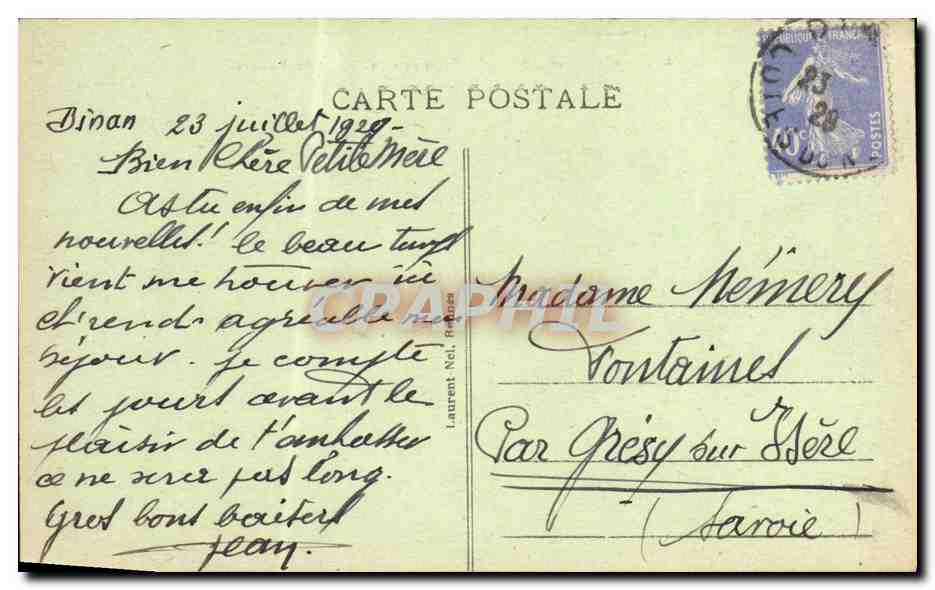 CARTE POSTALE
Dinan 23 juillet 1929-
Bien Chère Petite Mère
As tu enfin de mes
nouvelles! le beau temps
vient me trouver ici
et rend agréable mon
séjour. je compte
les jours avant le
plaisir de t'embrasser
ce ne sera pas long.
Gros bons baisers
Jean.
Laurent-Nel, Rennes
REPUBLIQUE FRANÇAISE
23
29
40c
POSTES
Madame Mémery
Fontaines
Par Grésy sur Isère
(Savoie)
CRAPHIL